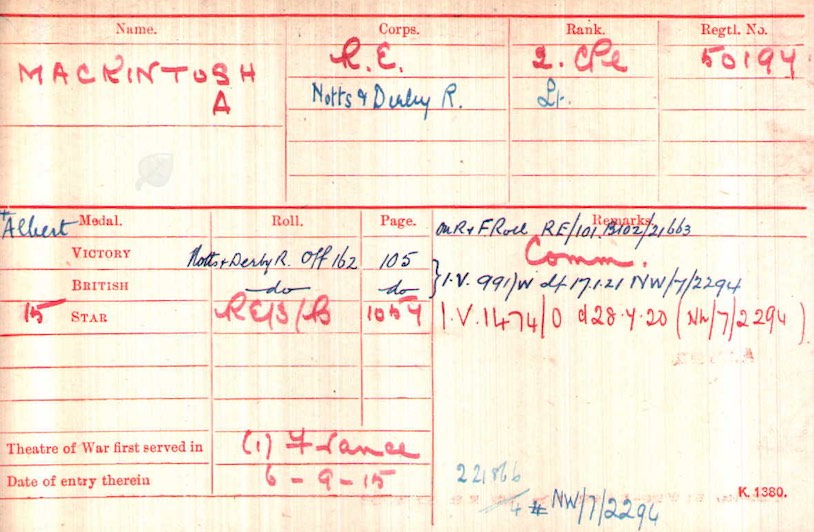 Name. Corps. Rank. Regtl. No.
MACKINTOSH R.E. 2. Cpl 50194
A Notts & Derby R. Lt.
+Albert Medal. Roll. Page. Remarks.
on R & F Roll RE/101.B102/21663
VICTORY Notts & Derby R. Off 162 105 Comm.
BRITISH do do } I.V. 991/W dt 17.1.21 NW/7/2294
15 STAR RE/3/B 1054 I.V.1474/O d 28.4.20 (NW/7/2294)
Theatre of War first served in (1) France
Date of entry therein 6-9-15 221866
# NW/7/2294
K. 1380.